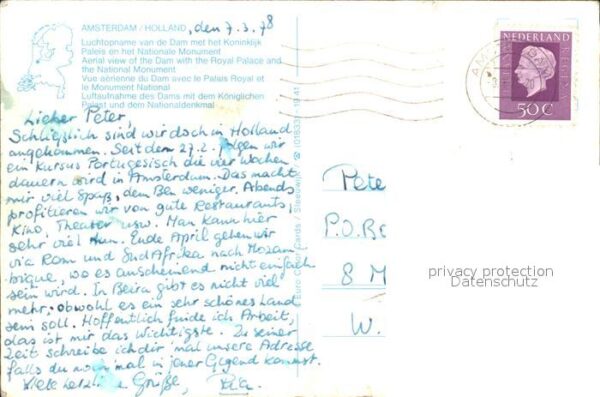 AMSTERDAM / HOLLAND, den 7.3.78
Luchtopname van de Dam met het Koninklijk
Paleis en het Nationale Monument
Aerial view of the Dam with the Royal Palace and
the National Monument
Vue aérienne du Dam avec le Palais Royal et
le Monument National
Luftaufnahme des Dams mit dem Königlichen
Palast und dem Nationaldenkmal
Lieber Peter,
Schließlich sind wir doch in Holland
angekommen. Seit dem 27.2. folgen wir
ein Kursus Portugesisch die vier Wochen
dauern wird in Amsterdam. Das macht
mir viel Spaß, dem Ben weniger. Abends
profitieren wir von gute Restaurants,
Kino, Theater usw. Man kann hier
sehr viel tun. Ende April gehen wir
via Rom und Südafrika nach Mozam-
bique, wo es anscheinend nicht einfach
sein wird. In Beira gibt es nicht viel
mehr, obwohl es ein sehr schönes Land
sein soll. Hoffentlich finde ich Arbeit,
das ist mir das Wichtigste. Zu seiner
Zeit schreibe ich dir 'mal unsere Adresse
falls du noch 'mal in jener Gegend kommst.
Viele herzliche Grüße, Ria.
Euro Color Cards / Sleeuwijk
NEDERLAND
50C
Pete
P.O.Be
8 M
W.
privacy protection
Datenschutz